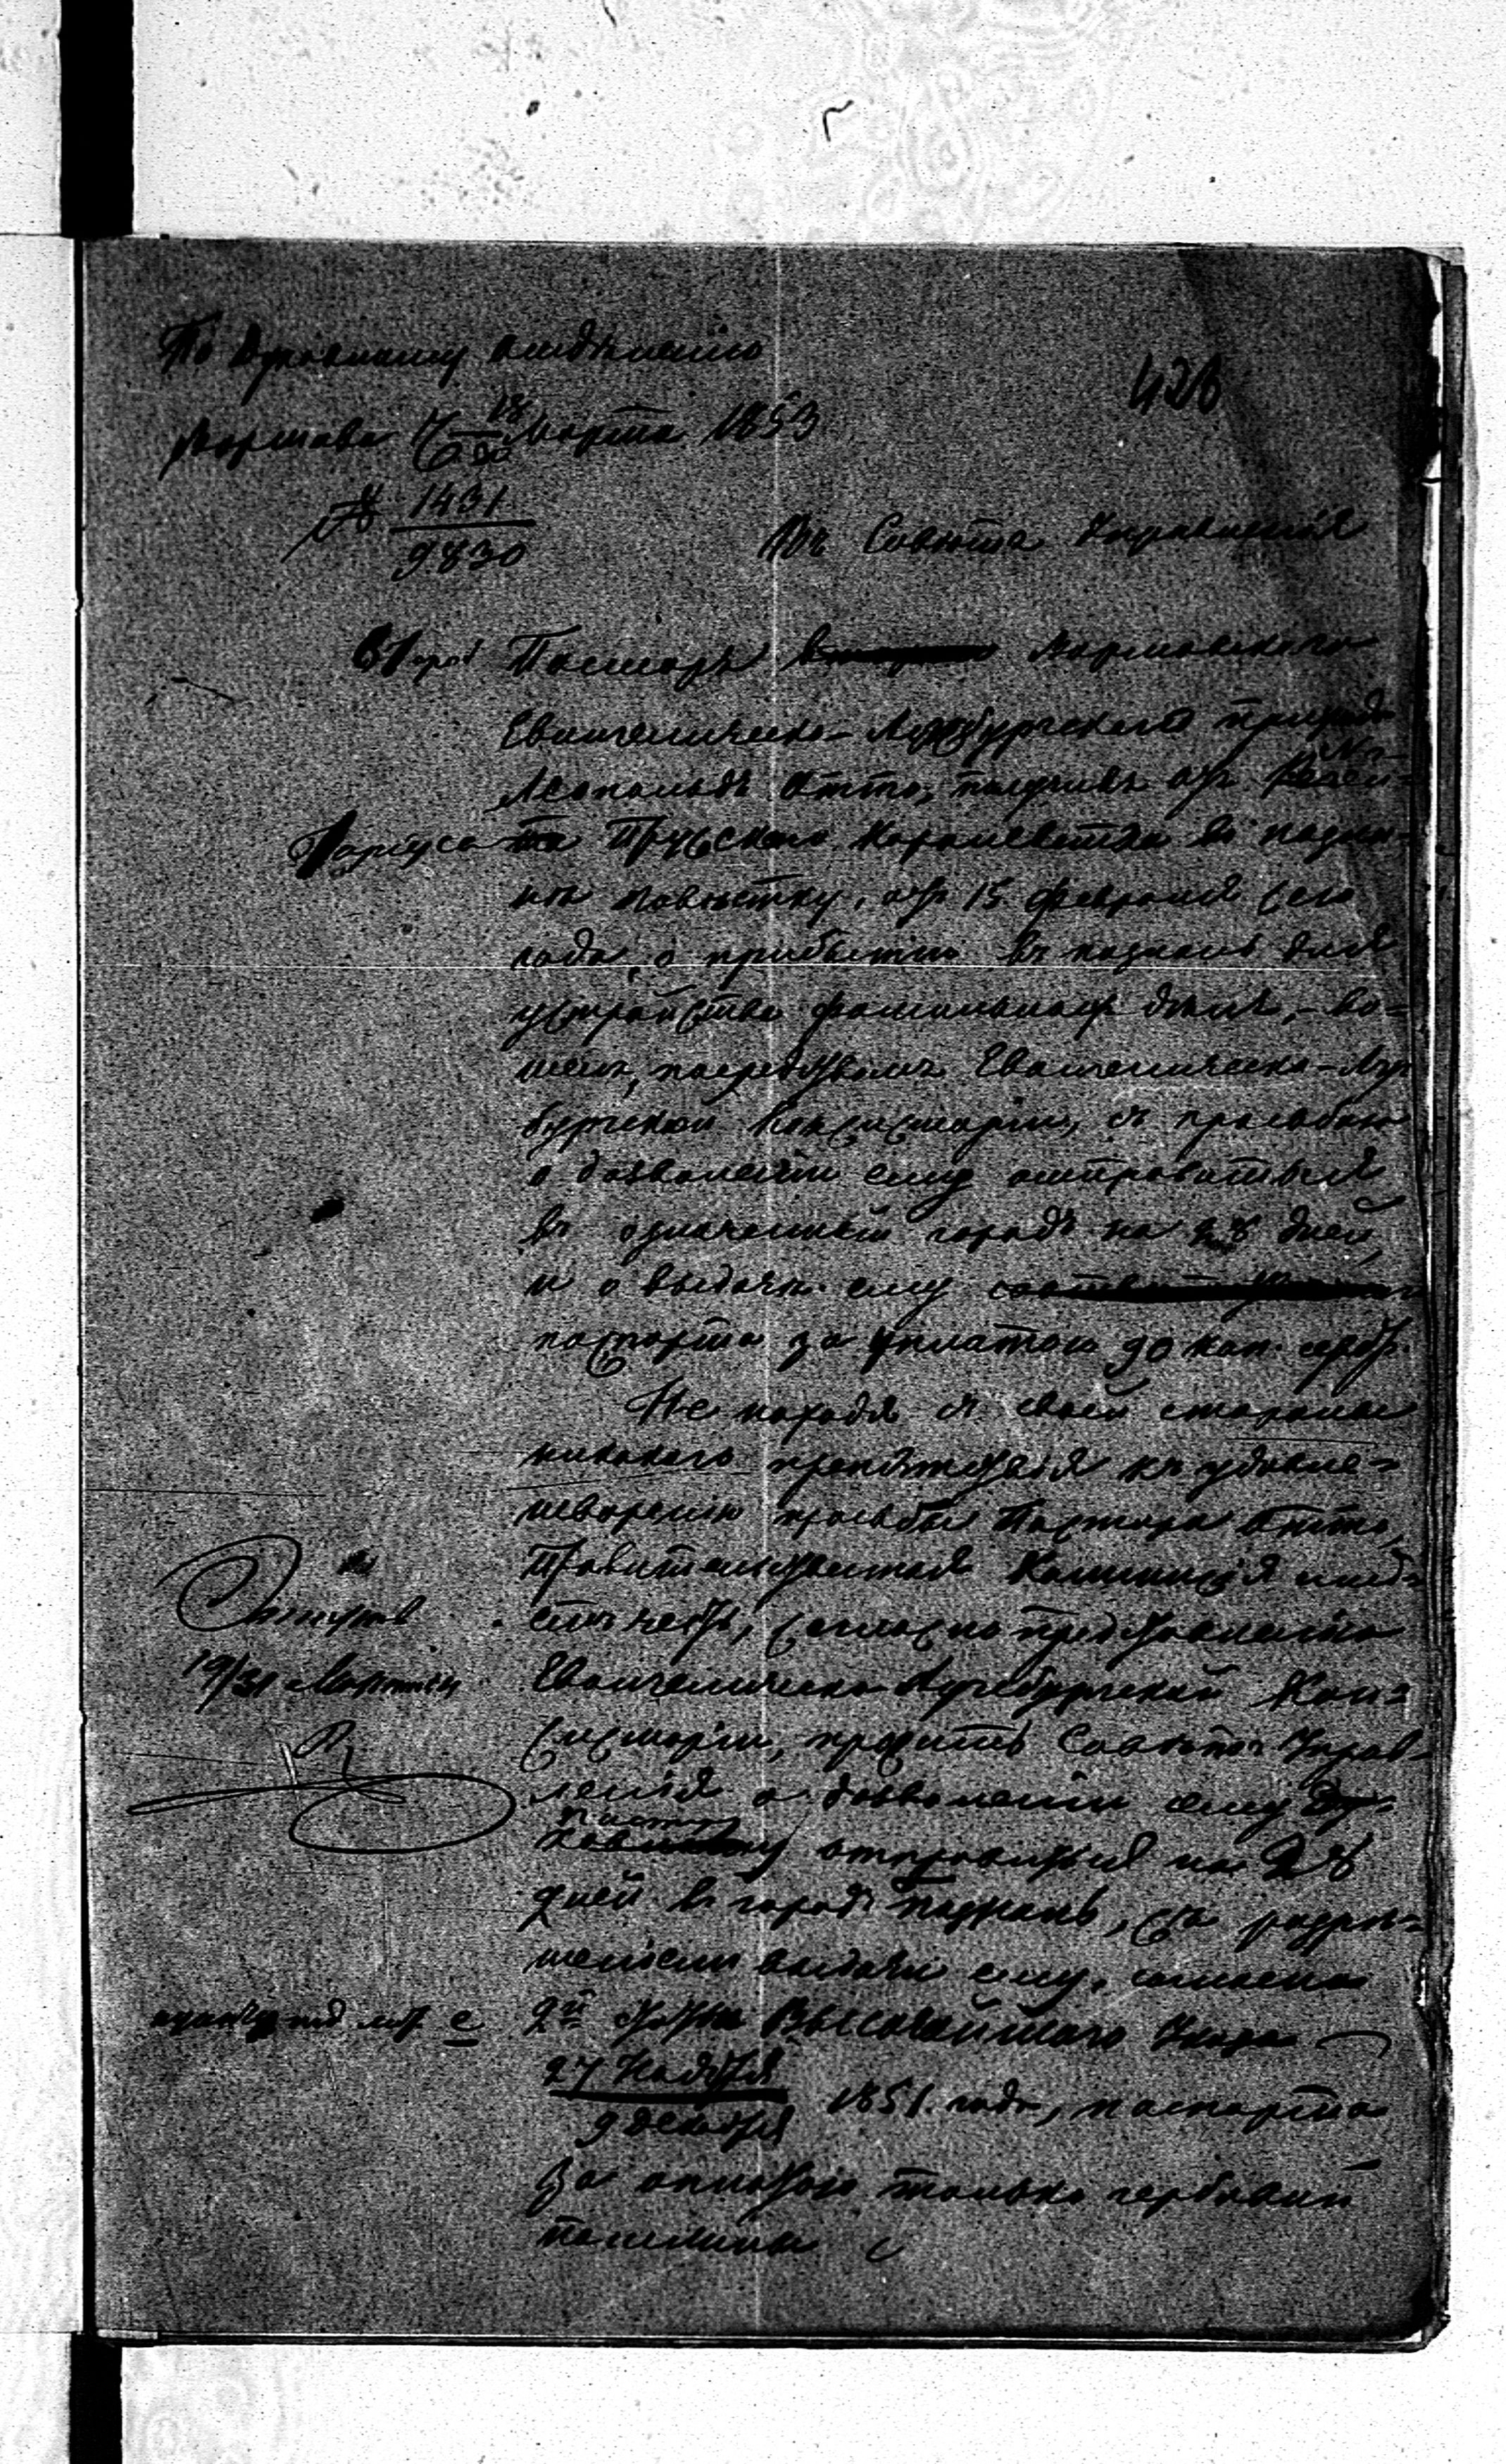 По Духовному отделенію
428
Варшава 18/30 Марта 1853
№ 1431/9830
Въ Советъ Управленія
Второй Пасторъ Варшавского
Евангелическо-Аугсбургского прихода
Леопольдъ Отто, получивъ отъ
Прусского Королевства въ Позна-
нѣ повѣстку, отъ 15 Февраля сего
года, о прибытіи въ Познань для
устройства фамильныхъ дѣлъ, - во-
шелъ, посредствомъ Евангелическо-Ауг
бургской Консисторіи, съ просьбою
о дозволеніи ему отправиться
въ означенный городъ на 28 дней,
и о выдачи ему
паспорта за уплатою 90 коп. серебр.
Не находя съ своей стороны
никакого препятствія къ удовле-
творенію просьбы Пастора Отто,
Правительственная Коммиссія имѣ-
етъ честь, согласно представленію
19/31 Марта
Евангелическо-Аугсбургской Кон-
систоріи, просить Советъ Управ-
ленія о дозволеніи ему
отправиться на 28
дней въ городъ Познань, съ разрѣ-
шеніемъ выдачи ему, согласно
2й Высочайшаго Указа
27 Ноября/9 Декабря 1851. года, паспорта
за оплатою только гербовой
пошлины